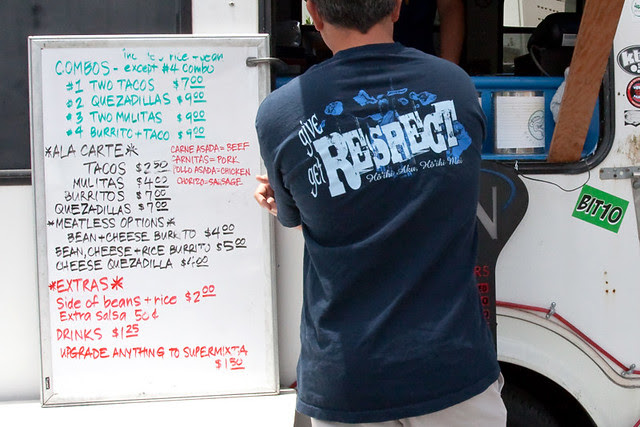 includes rice + bean
COMBOS - except #4 combo
#1 TWO TACOS $7.00
#2 QUEZADILLAS $9.00
#3 TWO MULITAS $9.00
#4 BURRITO + TACO $9.00
CARNE ASADA = BEEF
CARNITAS = PORK
POLLO ASADA = CHICKEN
CHORIZO = SAUSAGE
*ALA CARTE*
TACOS $2.50
MULITAS $4.00
BURRITOS $7.00
QUEZADILLAS $7.00
*MEATLESS OPTIONS*
BEAN + CHEESE BURRITO $4.00
BEAN, CHEESE + RICE BURRITO $5.00
CHEESE QUEZADILLA $4.00
*EXTRAS*
Side of beans + rice $2.00
Extra salsa 50¢
DRINKS $1.25
UPGRADE ANYTHING TO SUPERMIXTA
$1.50
give
RESPECT
get
BIT10